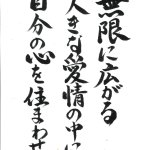 無限に広がる
大きな愛情の中に
自分の心を住まわせ